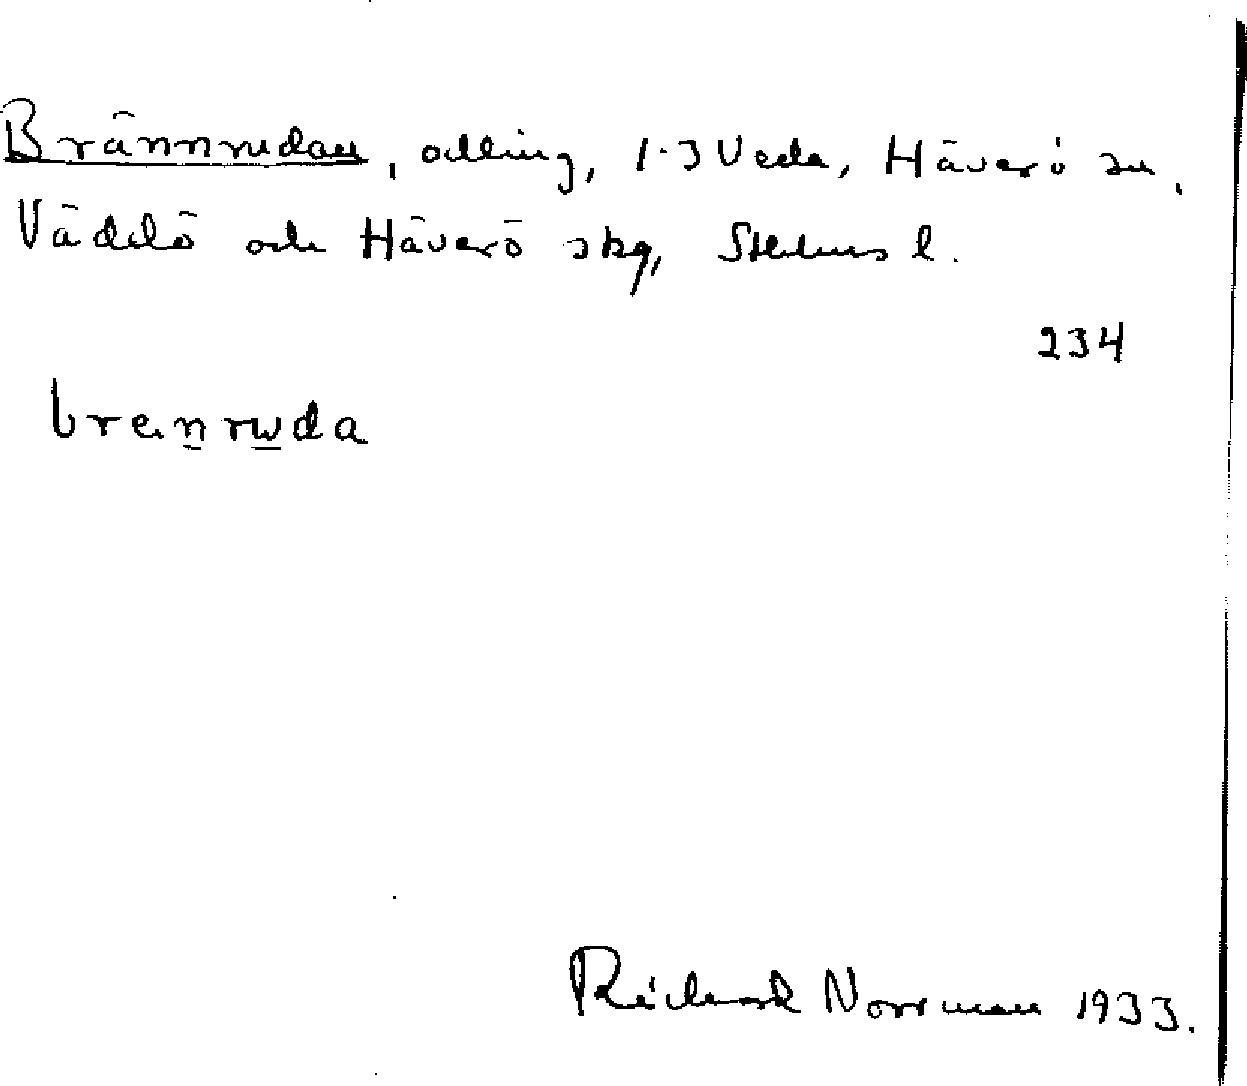 Brännrudan, odling, 1-3 Veda, Häverö sn,
Väddö och Häverö skg, Sthlms l.
234
brenruda
Rickard Norrman 1933.